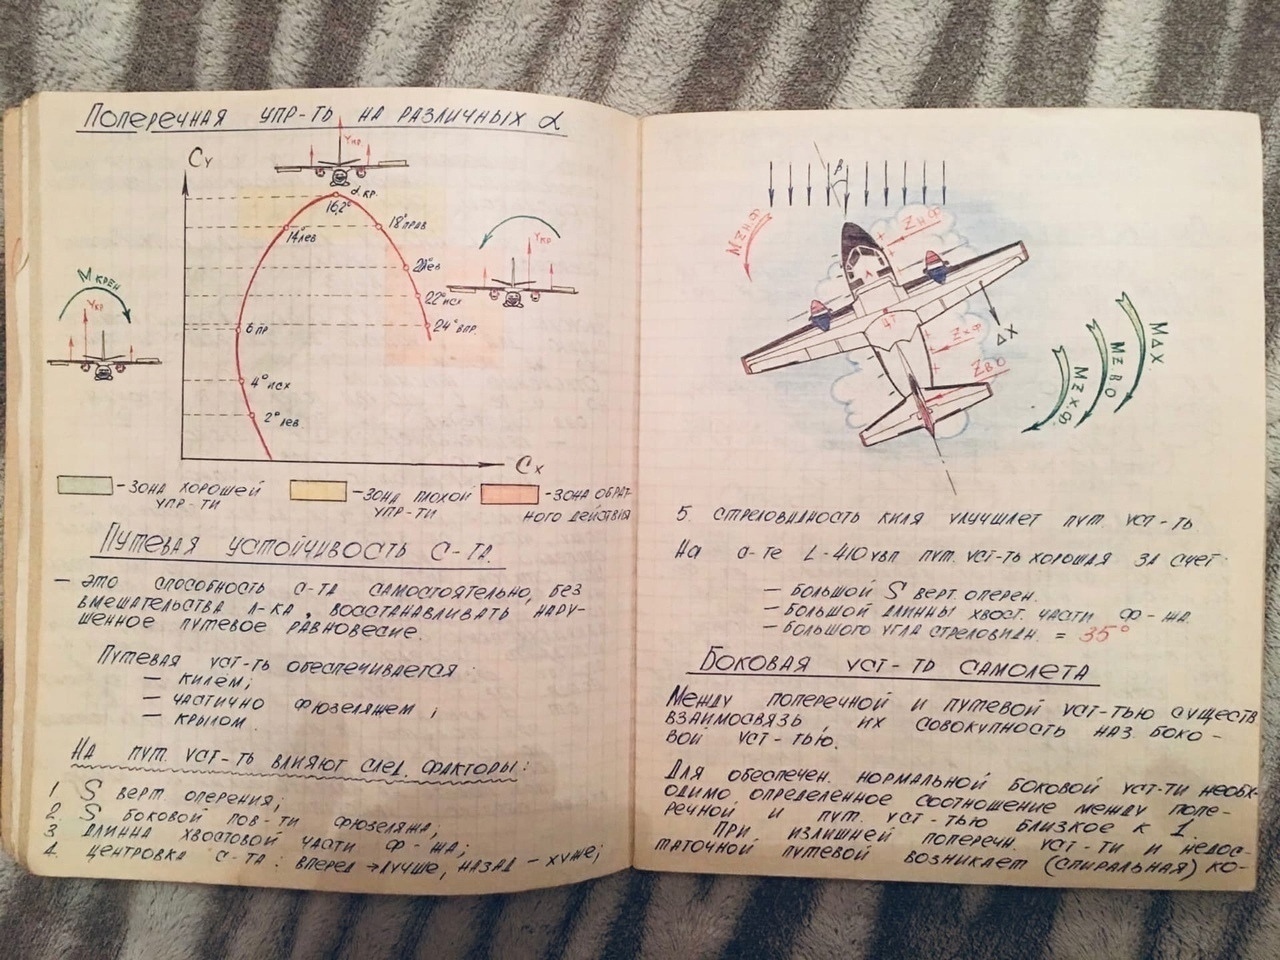 Поперечная упр-ть на различных α
Cу
Yкр
α кр.
16,2°
14° лев
18° прав
21° лев
22° исх
24° впр.
6 пр
4° исх
2° лев
Cх
Мкрен
Yкр
Yкр
- зона хорошей упр-ти
- зона плохой упр-ти
- зона обратного действия
Путевая устойчивость с-та.
— это способность с-та самостоятельно, без
вмешательства л-ка, восстанавливать нару-
шенное путевое равновесие.
Путевая уст-ть обеспечивается:
— килем;
— частично фюзеляжем;
— крылом.
На пут. уст-ть влияют след. факторы:
1 S верт. оперения;
2. S боковой пов-ти фюзеляжа;
3 длинна хвостовой части ф-жа;
4. центровка с-та: вперед → лучше, назад — хуже;
β
MZн.ф
Zн.ф
4°
Zх.ф
Zво
ΔX
MΔX
MZво
MZх.ф.
5. стреловидность киля улучшлет пут. уст-ть
На с-те L-410 увп пут. уст-ть хорошая за счет:
— большой S верт. оперен.
— большой длинны хвост. части ф-жа.
— большого угла стреловидн. = 35°
Боковая уст-ть самолета
Между поперечной и путевой уст-тью существ
взаимосвязь, их совокупность наз. боко-
вой уст-тью.
Для обеспечен. нормальной боковой уст-ти необх-
одимо определенное соотношение между попе-
речной и пут. уст-тью близкое к 1.
При излишней поперечн. уст-ти и недос-
таточной путевой возникает (спиральная) ко-